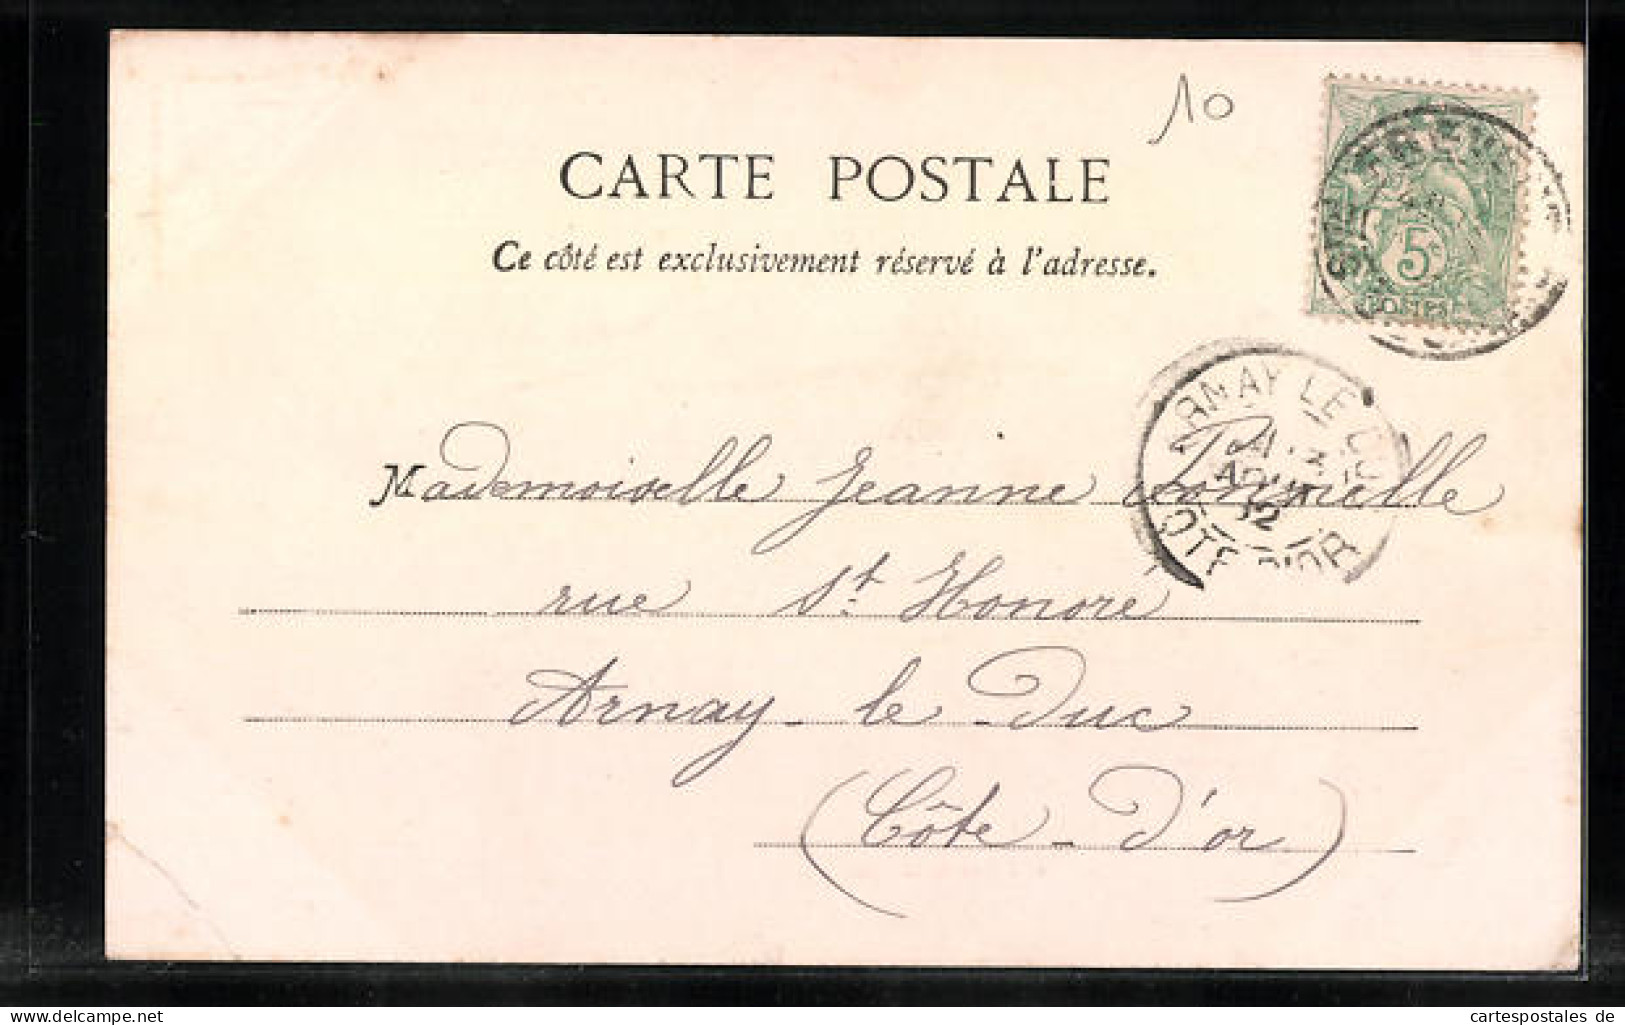 10
CARTE POSTALE
Ce côté est exclusivement réservé à l'adresse.
5c
POSTES
ARNAY LE
AOUT
02
COTE D'OR
Mademoiselle Jeanne
rue St. Honoré
Arnay-le-Duc
(Côte-d'or)
www.delcampe.net
cartespostales de